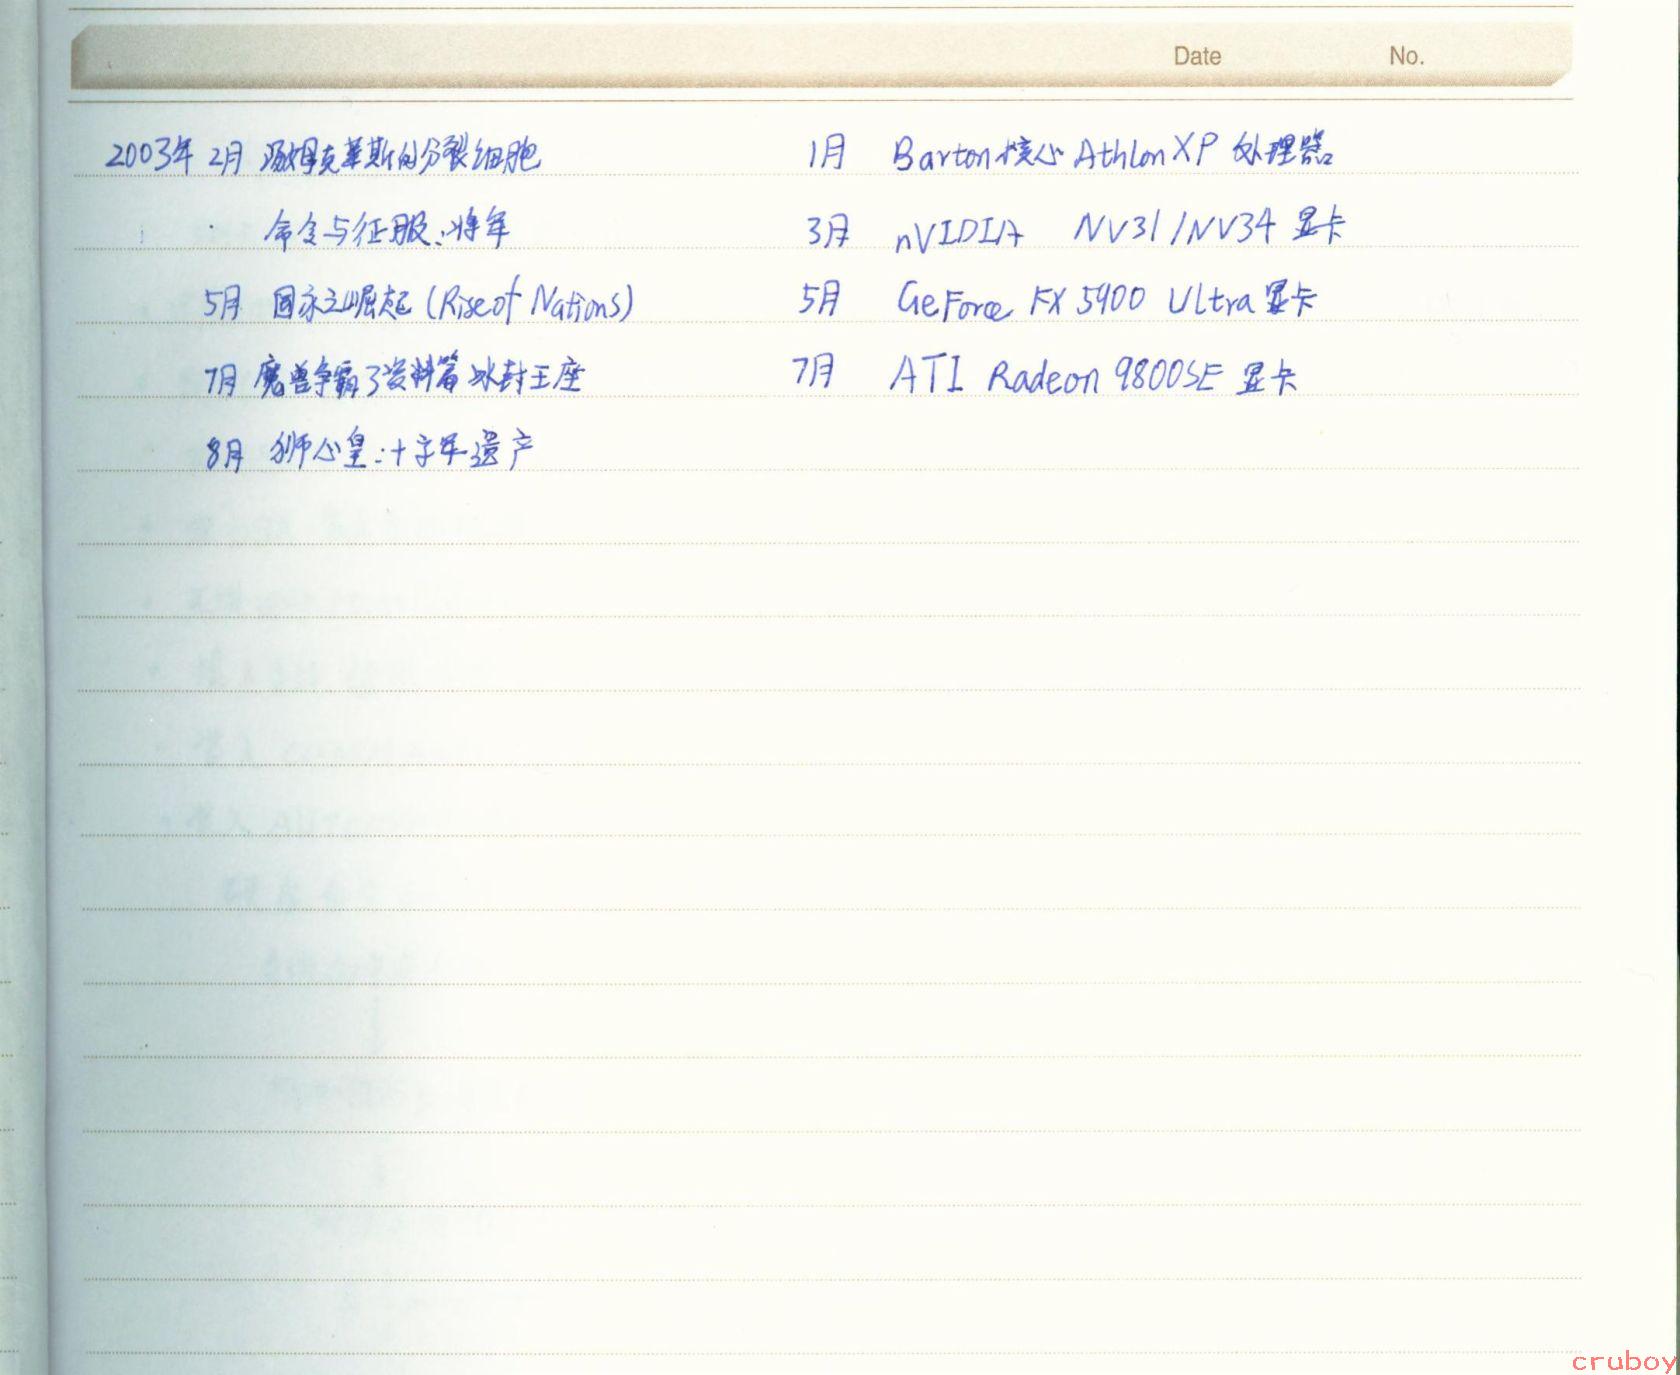 Date No.
2003年 2月 汤姆克莱斯的分裂细胞 1月 Barton核心 Athlon XP 处理器
命令与征服:将军 3月 nVIDIA NV31/NV34 显卡
5月 国家之崛起 (Rise of Nations) 5月 GeForce FX 5900 Ultra 显卡
7月 魔兽争霸3资料篇 冰封王座 7月 ATI Radeon 9800SE 显卡
8月 狮心皇:十字军遗产
cruboy